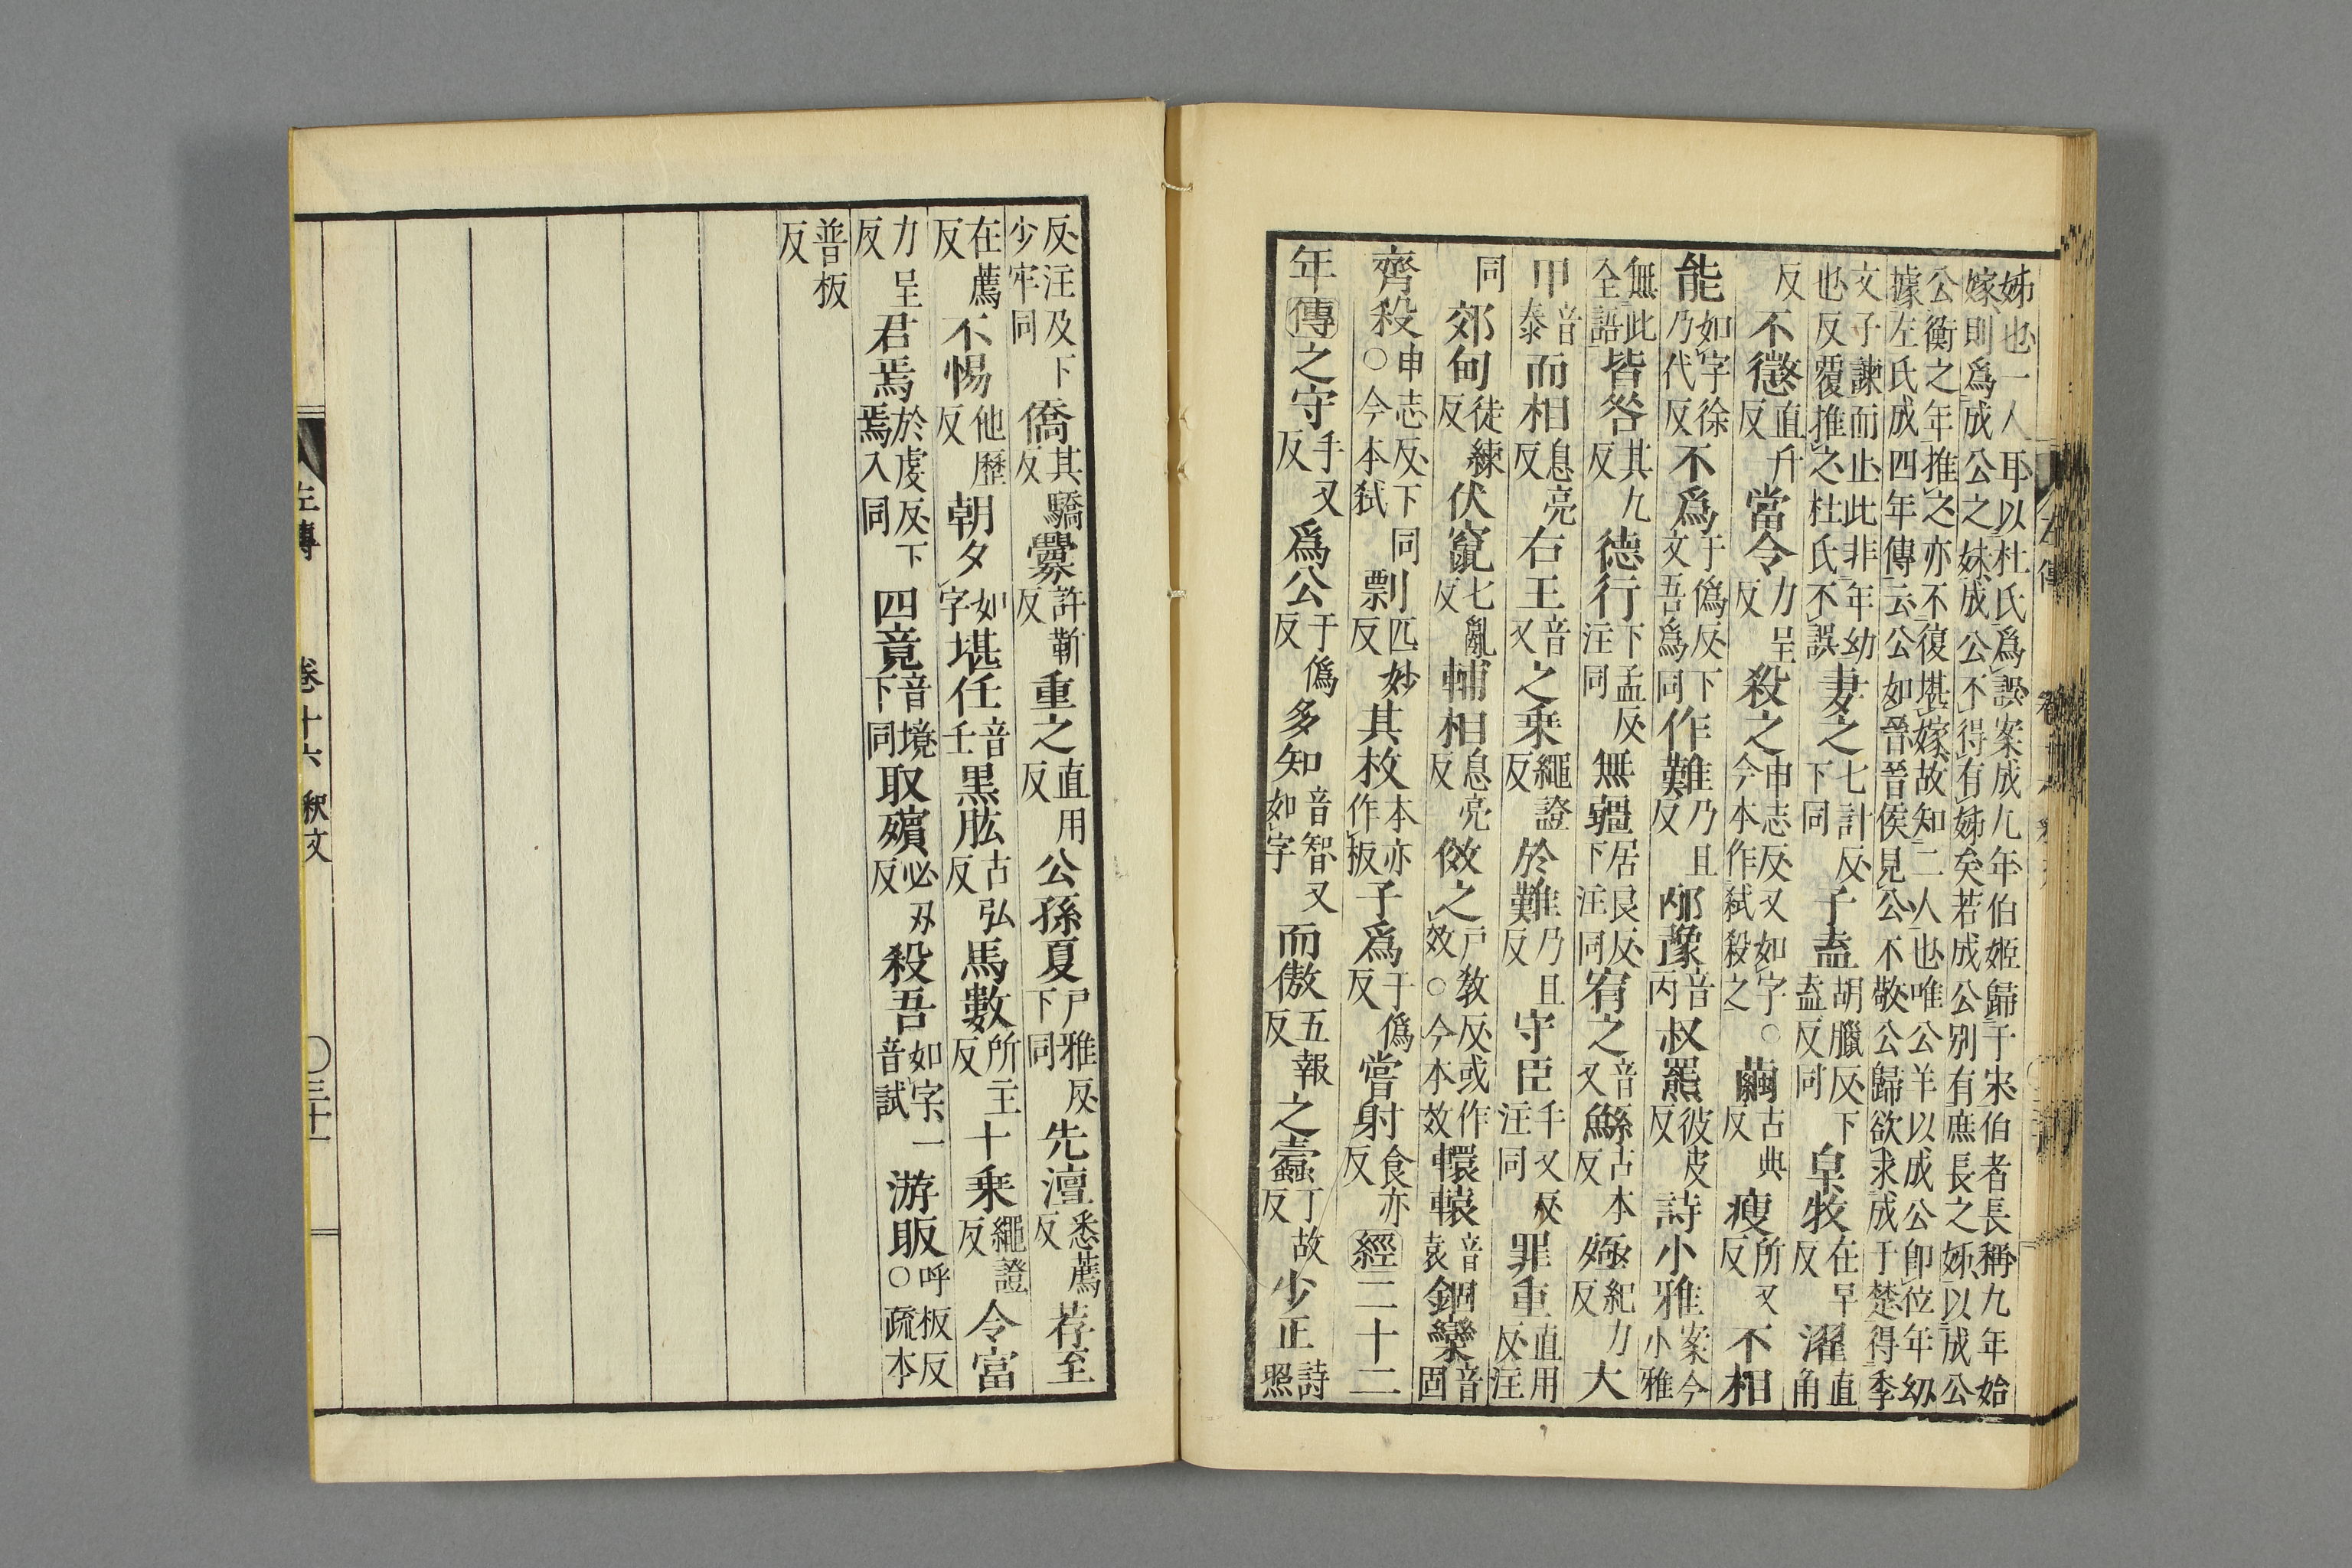 姊也一人耳以杜氏爲誤案成九年伯姬歸于宋伯者長稱九年始
嫁則爲成公之妹成公不得有姊矣若成公别有庶長之姊以成公
公衡之年推之亦不復堪嫁故知二人也唯公羊以成公卽位年幼
據左氏成四年傳云公如晉晉侯見公不敬公歸欲求成于楚得季
文子諫而止此非年幼
也反覆推之杜氏不誤
妻之七計反下同子盍胡臘反下盍反同皁牧在早反濯直角
反不懲直升反當令力呈反殺之申志反又如字○今本作弑殺之繭古典反瘦所又反不相
能如字徐乃代反不爲于僞反下文吾爲同作難乃且反邴豫音丙叔羆彼皮反詩小雅案今小雅
無此全語皆咎其九反德行下孟反注同無疆居艮反下注同宥之音又鯀古本反殛紀力反大
甲音泰而相息亮反右王音又之乗繩證反於難乃且反守臣手又反注同罪重直用反注
同郊甸徒練反伏竄七亂反輔相息亮反傚之戸教反或作效○今本效轘轅音袁錮欒音固
齊殺申志反下同○今本弑剽匹妙反其枚本亦作板子爲于僞反嘗射食亦反經二十二
年傳之守手又反爲公于僞反多知音智又如字而傲五報反之蠧丁故反少正詩照
反注及下少牢同僑其驕反釁許靳反重之直用反公孫夏戸雅反下同先澶悉薦反荐至
在薦反不惕他歷反朝夕如字堪任音壬黒肱古弘反馬數所主反十乗繩證反令富
力呈反君焉於虔反下焉入同四竟音境下同取殯必刃反殺吾如字一音試游眅呼板反○疏本
普板反
左傳　卷十六　釈文　○三十一